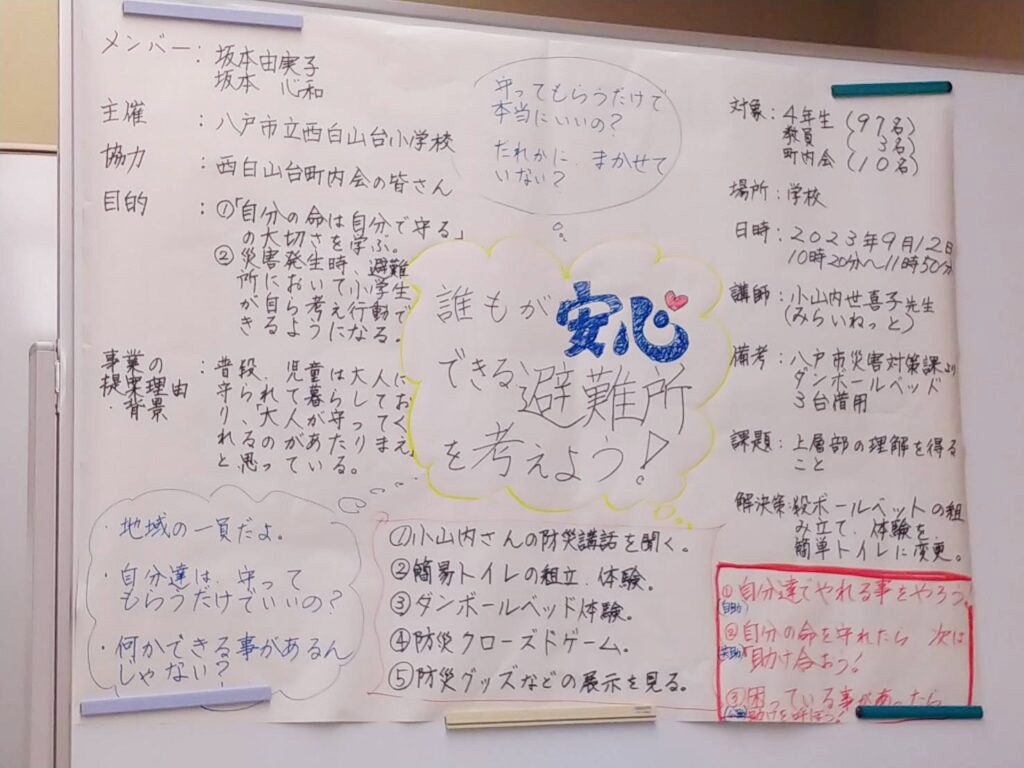 メンバー：坂本由実子
坂本 心和
主催：八戸市立西白山台小学校
協力：西白山台町内会の皆さん
目的：①「自分の命は自分で守る」
の大切さを学ぶ。
②災害発生時、避難
所において小学生
が自ら考え行動で
きるようになる。
事業の
提案理由
・背景
：普段、児童は大人に
守られて暮らしてお
り、「大人が守ってく
れるのがあたりまえ」
と思っている。
守ってもらうだけで
本当にいいの？
だれかに、まかせて
いない？
誰もが安心
できる避難所
を考えよう！
対象：4年生（97名）
教員（3名）
町内会（10名）
場所：学校
日時：2023年9月12日
10時20分〜11時50分
講師：小山内世喜子先生
（みらいねっと）
備考：八戸市災害対策課より
ダンボールベッド
3台借用
課題：上層部の理解を得る
こと
解決策：段ボールベットの組
み立て、体験を、
簡単トイレに変更。
・地域の一員だよ。
・自分達は、守って
もらうだけでいいの？
・何かできる事があるん
じゃない？
①小山内さんの防災講話を聞く。
②簡易トイレの組立、体験。
③ダンボールベッド体験。
④防災クローズドゲーム。
⑤防災グッズなどの展示を見る。
①自分達でやれる事をやろう！
自助
②自分の命を守れたら 次は
共助
助け合おう！
③困っている事があったら
助けを呼ぼう！